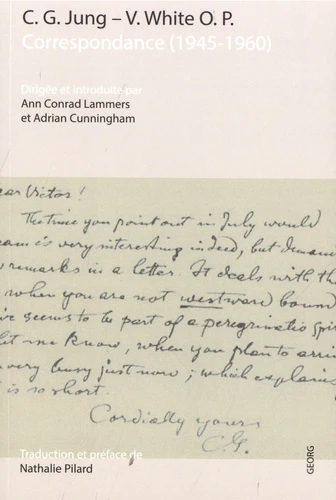 C. G. Jung – V. White O. P.
Correspondance (1945-1960)
Dirigée et introduite par
Ann Conrad Lammers
et Adrian Cunningham
ear Victor!
The time you point out in July would
eam is very interesting indeed, but demand
remarks in a letter. It deals with the
when you are not westward bound
ve seems to be part of a peregrinatio spiri
let me know, when you plan to arri
very busy just now; which explains
is so short.
Cordially yours
C.G.
Traduction et préface de
Nathalie Pilard
GEORG